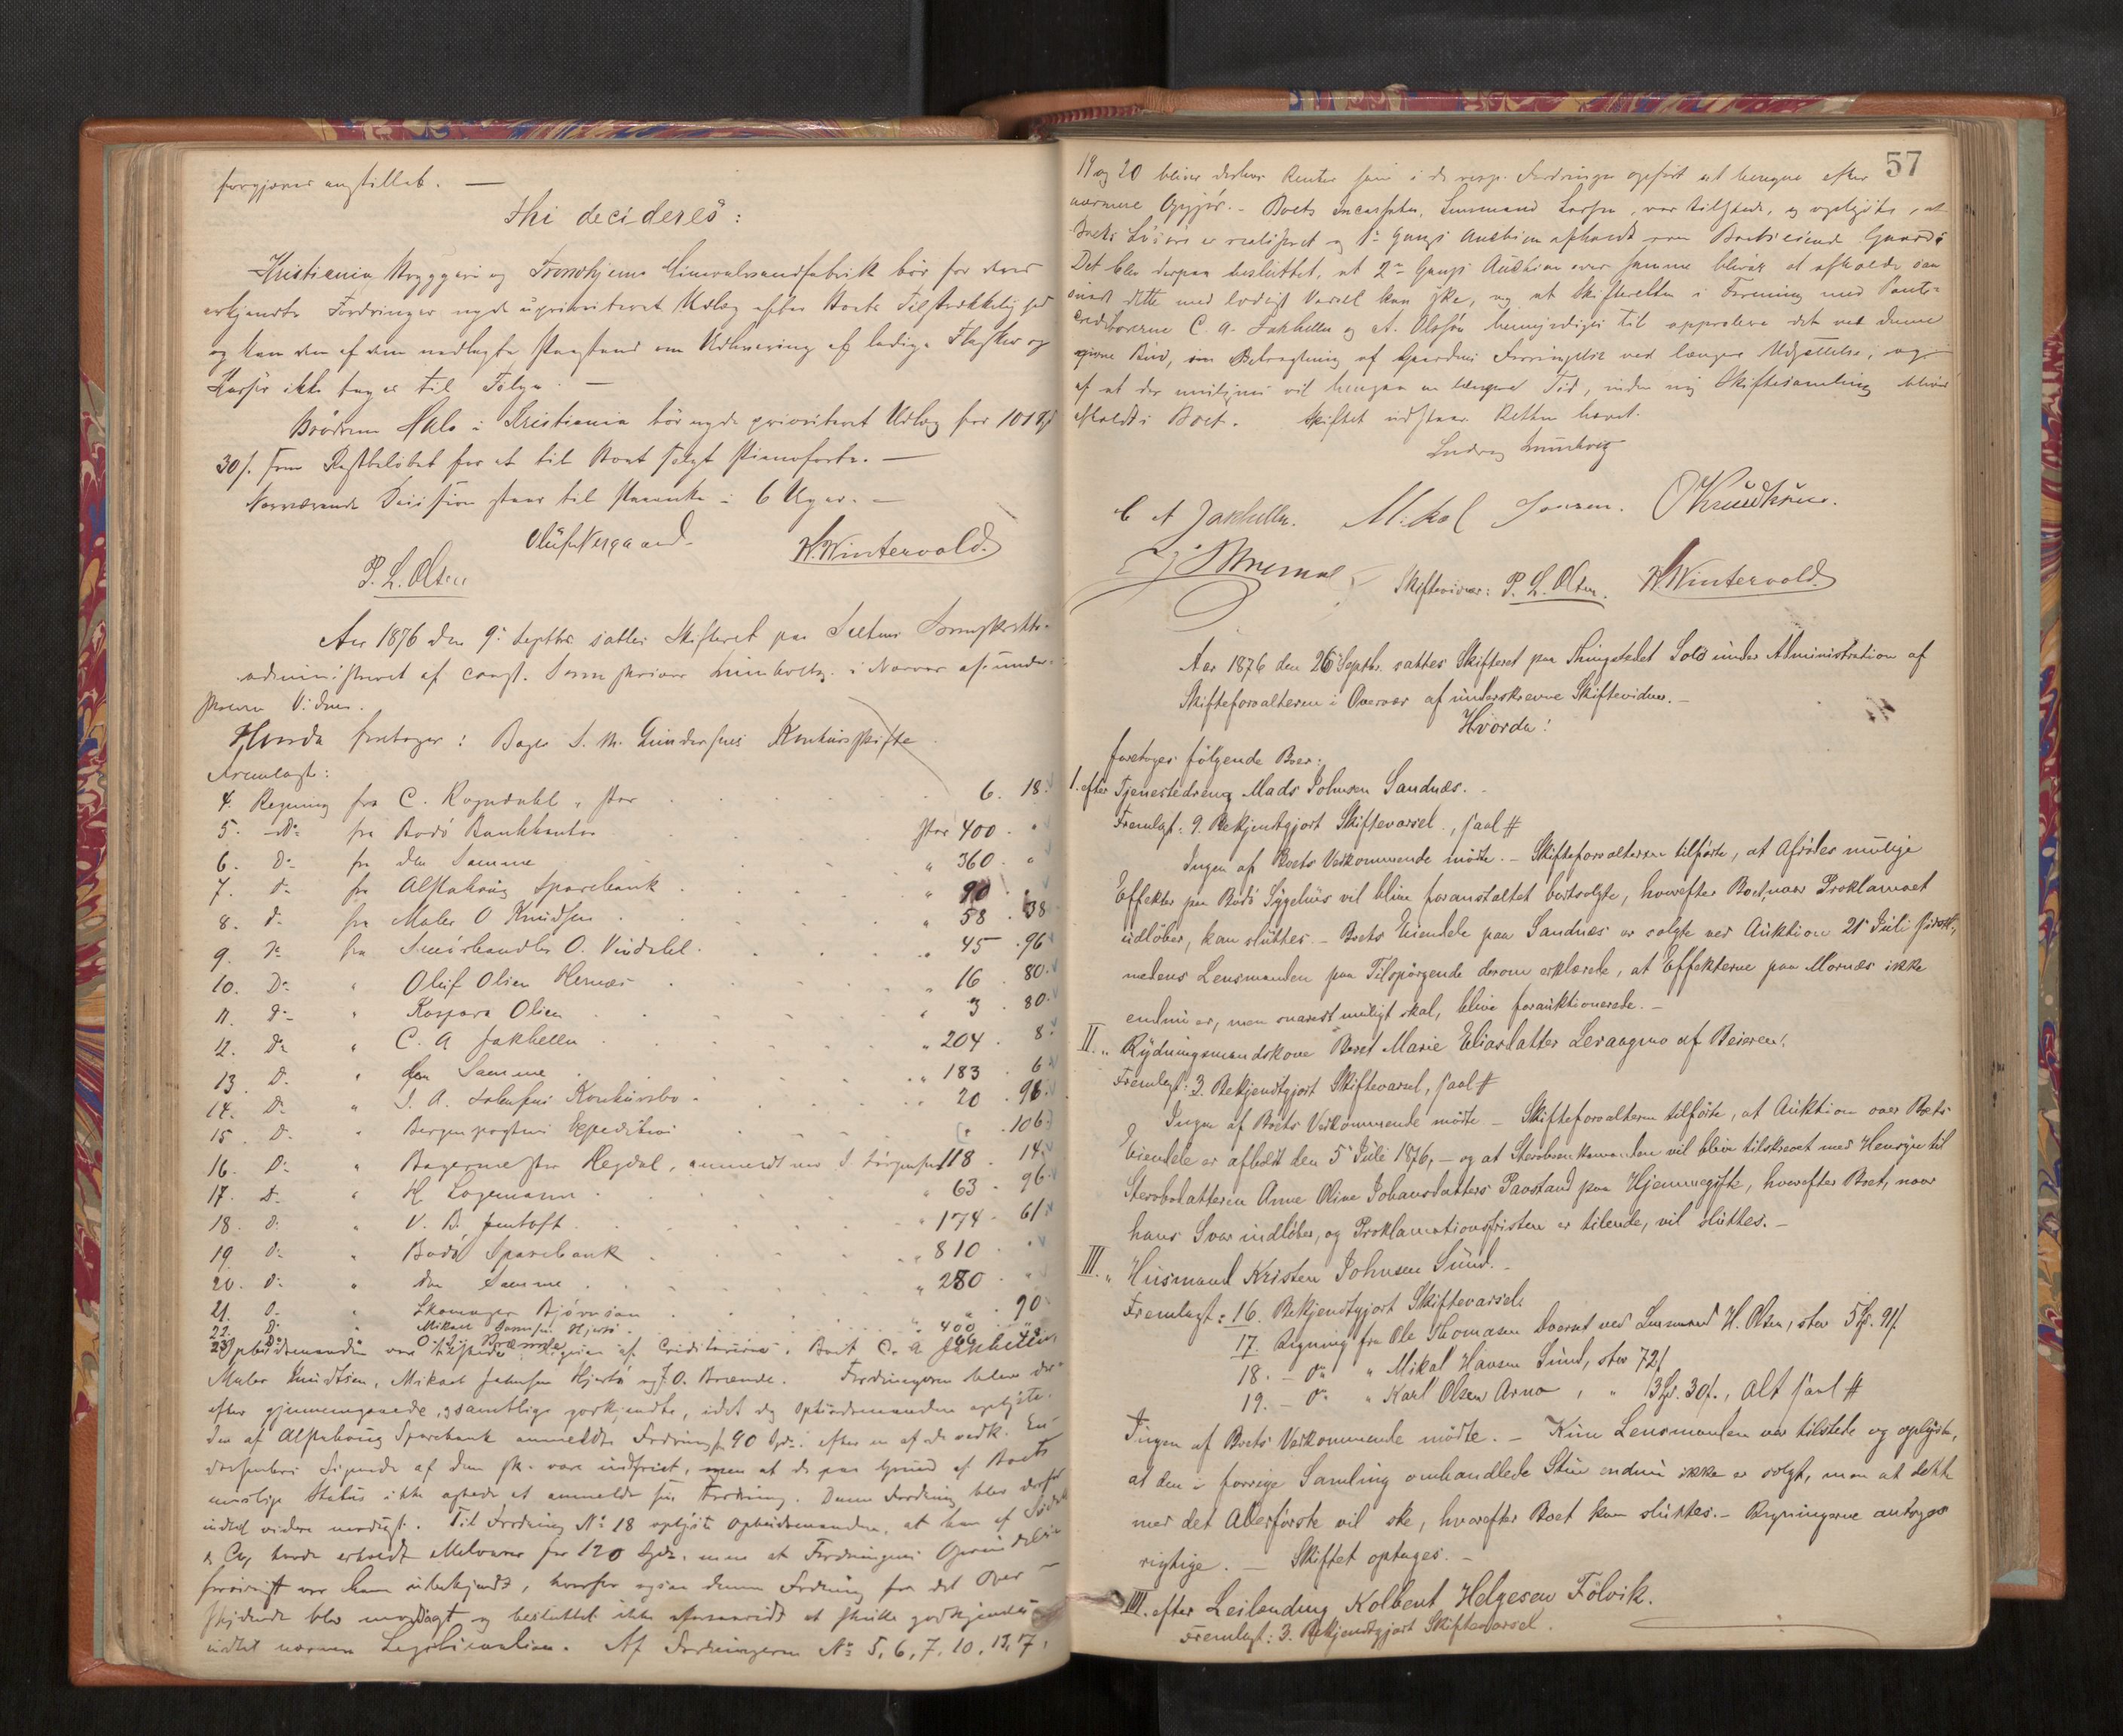 forgjæves anstillet. —
Thi decideres:
Kristiania Bryggeri og Trondhjems Mineralvandfabrik bør for deres
erkjendte Fordringer nyde uprioriteret Udlæg efter Boets Tilstrækkelighed
og kan den af dem nedlagte Paastand om Udlevering af ledige Flasker og
Kasser ikke tages til Følge. —
Brödrene Hals i Kristiania bör nyde prioriteret Udlæg for 101 Spd
30 s. som Restbelöbet for et til Boet solgt Pianoforte. —
Nærværende Decision staar til Paaanke i 6 Uger. —
Oluf Nergaard. H. Wintervold.
P. L. Olsen
Aar 1876 den 9. Septbr sattes Skifteret paa Saltens Sorenskriveri
administreret af const. Sorenskriver i Nærvær af under-
skrevne Vidner.
Hvorda foretoges: Bager S. M. Gundersens Konkursskifte
Fremlagt:
4. Regning fra C. Rogndahl, stor 6. 18.
5. Do fra Bodö Bankkontor stor 400 . "
6. Do fra den Samme " 360 . "
7. Do fra Alstahoug Sparebank " 90 . "
8. Do fra Maler O Knudsen " 58 . 38
9. Do fra Smörhandler O. Vindahl. " 45 . 96
10. Do " Oluf Olsen Hernæs " 16 . 80.
11. Do " Kaspara Olsen " 3 . 80.
12. Do " C. A Jakhelln " 204 . 8.
13. D. " den Samme " 183 . 6
14. Do " J. A. Johnsens Konkursbo " 20 . 96.
15. D. " Bergenspostens Expedition " . 106.
16. D. " Bagermester Hegdal, anmeldt ved J. Jörgensen 118 . 14.
17. D. " H. Logemann " 63 . 96
18. D. " V. B. Jentoft " 174 . 61
19. D. " Bodö Sparebank " 810 . "
20. D. " den Samme " 280 . "
21. D. " Skomager Björnson " . 90
22. D. " Mikael Jonsen Hjertö " 400 . "
23. D. O. J. Brænde
Opbudsmanden var tilstede. Ligesaa af Creditorerne i Boet C. A Jakhelln,
Maler Knudtsen, Mikael Johnsen Hjertö og J. O. Brænde. Fordringerne blev der-
efter gjennemgaaede, og samtlige godkjendte, idet dog Opbudsmanden oplyste
den af Alstahoug Sparebank anmeldte Fordring for 90 Spd. efter en af de vedk. En-
var indfriet, men at de paa Grund af Boets
uselige Status ikke agtede at anmelde sin Fordring. Denne Fordring blev derfor
indtil videre nægtet. Til Fordring No 18 oplyste Opbudsmanden, at han af
& Co, havde erholdt Melvarer for 120 Spdr. men at Fordringens Oprindelse
forövrigt var ham ubekjendt, hvorfor ogsaa denne Fordring for det Over-
skydende blev modsagt og besluttet ikke at skulle godkjendes
indtil nærmere Legitimation. Af Fordringerne No 5, 6, 7, 10, 13, 17,
57
19 og 20 bliver derhos Renter som i de resp. Fordringer opfört at beregne efter
nærmere Opgjör. — Boets Incassator, Lensmand Larsen, var tilstede, og oplyste, at
Boets Lösöre er realiseret og 1ste Gangs Auktion afholdt over Boets eiende Gaard.
Det blev derpaa besluttet, at 2den Gangs Auktion over samme bliver at afholde saa
snart dette med lovligt Varsel kan ske, og at Skifteretten i Forening med Pant-
creditorerne C. A. Jakhelln og A. Olssön bemyndiges til approbere det ved denne
givne Bud, i Betragtning af Gaardens Forringelse ved længere Udsættelse, og
af at der muligens vil hengaa en længere Tid, inden ny Skiftesamling bliver
afholdt i Boet. Skiftet udstaar. Retten hævet.
C A Jakhelln. Mikal Jonsen. O Knudtsen.
Skiftevidner: P. L. Olsen. H. Wintervold.
Aar 1876 den 26 Septbr. sattes Skifteret paa Thingstedet Solö under Administration af
Skifteforvalteren i Overvær af underskrevne Skiftevidner. —
Hvorda:
foretoges fölgende Boer:
I. efter Tjenestedreng Mads Johnsen Sandnæs. -
Fremlagt: 9. Bekjendtgjort Skiftevarsel, saal #
Ingen af Boets Vedkommende mödte. — Skifteforvalteren tilförte, at Afdödes mulige
Effekter paa Bodö Sygehus vil blive foranstaltet bortsolgte, hvorefter Boet, naar Proklamaet
udlöber, kan sluttes. — Boets Eiendele paa Sandnæs er solgte ved Auktion 21 Juli sidstl.,
medens Lensmanden paa Tilspörgende derom erklærede, at Effekterne paa Mornæs ikke
endnu er, men snarest muligt skal, blive forauktionerede. —
II. " Rydningsmandskone Beret Marie Eliasdatter Leraagmo af Beieren.
Fremlagt: 3. Bekjendtgjort Skiftevarsel, saal #
Ingen af Boets Vedkommende mödte — Skifteforvalteren tilförte, at Auktion over Boets
Eiendele er afholdt den 5 Juli 1876, — og at Stervboenkemanden vil blive tilskrevet med Hensyn til
Stervbodatteren Anne Oline Johansdatters Paastand paa Hjemmegifte, hvorefter Boet, naar
hans Svar indlöber, og Proklamationsfristen er tilende, vil sluttes. —
III. " Husmand Kristen Johnsen Sund. -
Fremlagt: 16. Bekjendtgjort Skiftevarsel.
17. Regning fra Ole Thomasen Doernt ved Lensmand H. Olsen, stor 5 Sp. 91 s.
18. — Do " Mikal Hansen Sund, stor 72 s
19. — Do " Karl Olsen Arnø, " 3 Sp. 30 s., alt saal #
Ingen af Boets Vedkommende mödte. — Kun Lensmanden var tilstede og oplyste,
at den i forrige Samling omhandlede Stue endnu ikke er solgt, men at dette
med det Allerförste vil ske, hvorefter Boet kan sluttes. — Regningerne antoges
rigtige. — Skiftet optages. —
IIII. efter Leilending Kolbent Helgesen Fölvik.
Fremlagt: 3. Bekjendtgjort Skiftevarsel.